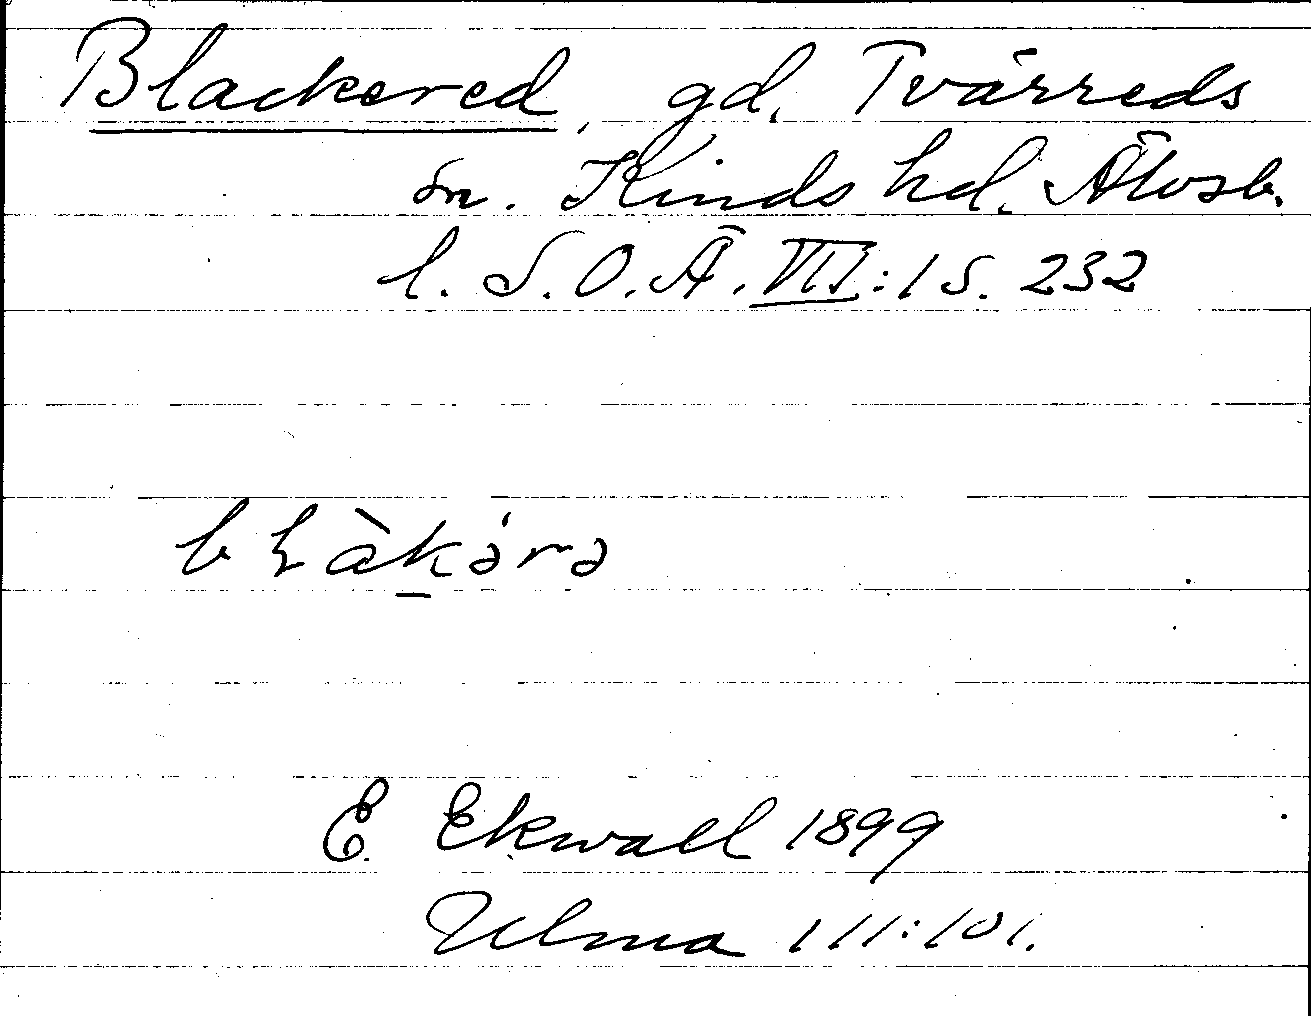 Blackered, gd. Tvärreds
sn. Kinds hd. Älvsb.
l. S.O.Ä. VII:1 s. 232
bɫàkə́rə
E. Ekwall 1899
Ulma 111:101.